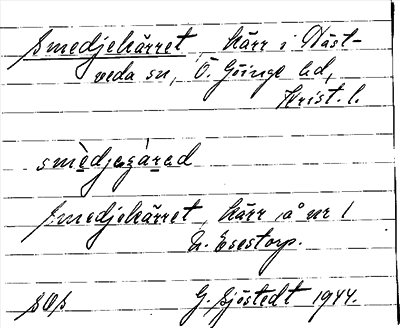 Smedjekärret, kärr i Väst-
veda sn, Ö. Göinge hd,
Krist. l.
smèdjegárad
Smedjekärret, kärr å nr 1
N. Esestorp.
SOs
G. Sjöstedt 1944.